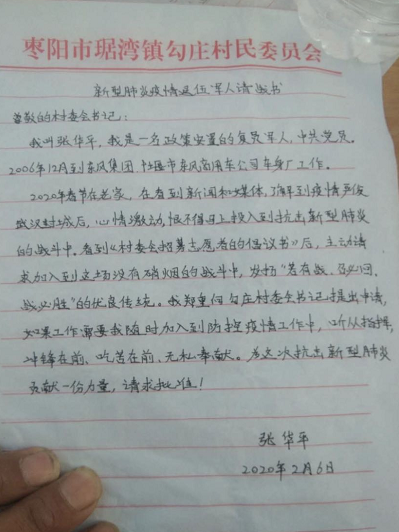 枣阳市琚湾镇勾庄村民委员会
新型肺炎疫情退伍军人请战书
尊敬的村委会书记：
我叫张华平，我是一名政策安置的复员军人，中共党员。
2006年12月到东风集团 十堰市东风商用车公司车身厂工作。
2020年春节在老家，在看到新闻和媒体，了解到疫情严峻
武汉封城后，心情激动，恨不得马上投入到抗击新型肺炎
的战斗中。看到《村委会招募志愿者的倡议书》后，主动请
求加入到这场没有硝烟的战斗中，发扬“若有战、召必回、
战必胜”的优良传统。我郑重向勾庄村委会书记提出申请，
如果工作需要我随时加入到防控疫情工作中，听从指挥，
冲锋在前、吃苦在前、无私奉献。为这次抗击新型肺炎
贡献一份力量，请求批准！
张华平
2020年2月6日